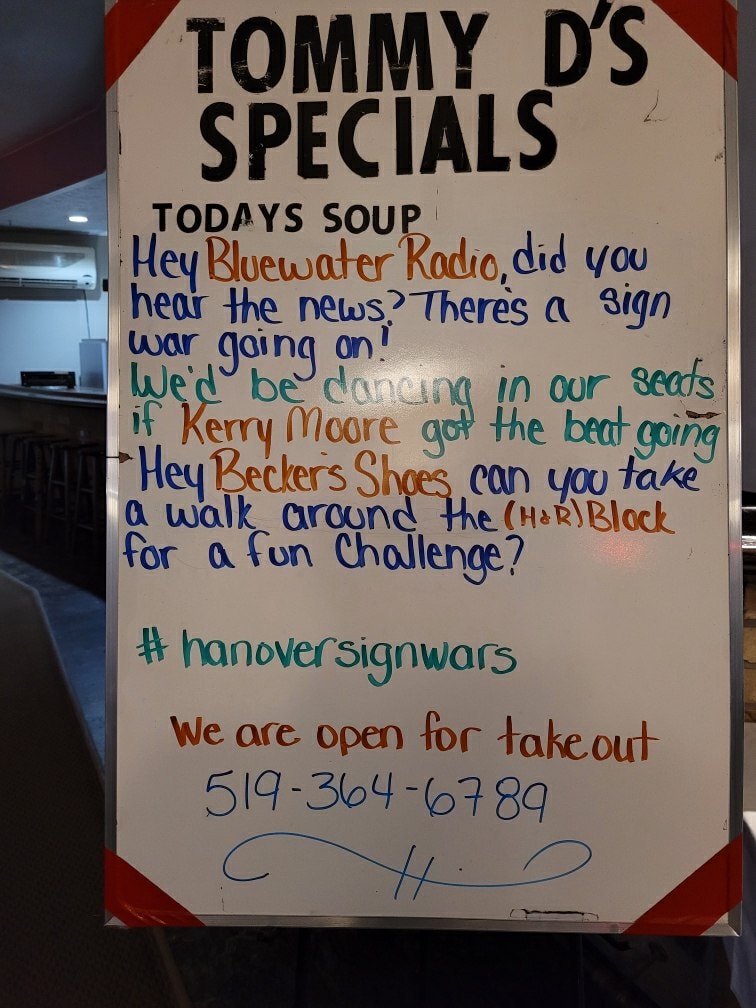 TOMMY D'S
SPECIALS
TODAYS SOUP
Hey Bluewater Radio, did you
hear the news? There's a sign
war going on!
We'd be dancing in our seats
if Kerry Moore got the beat going
Hey Becker's Shoes can you take
a walk around the (H&R) Block
for a fun Challenge?
# hanoversignwars
We are open for takeout
519-364-6789